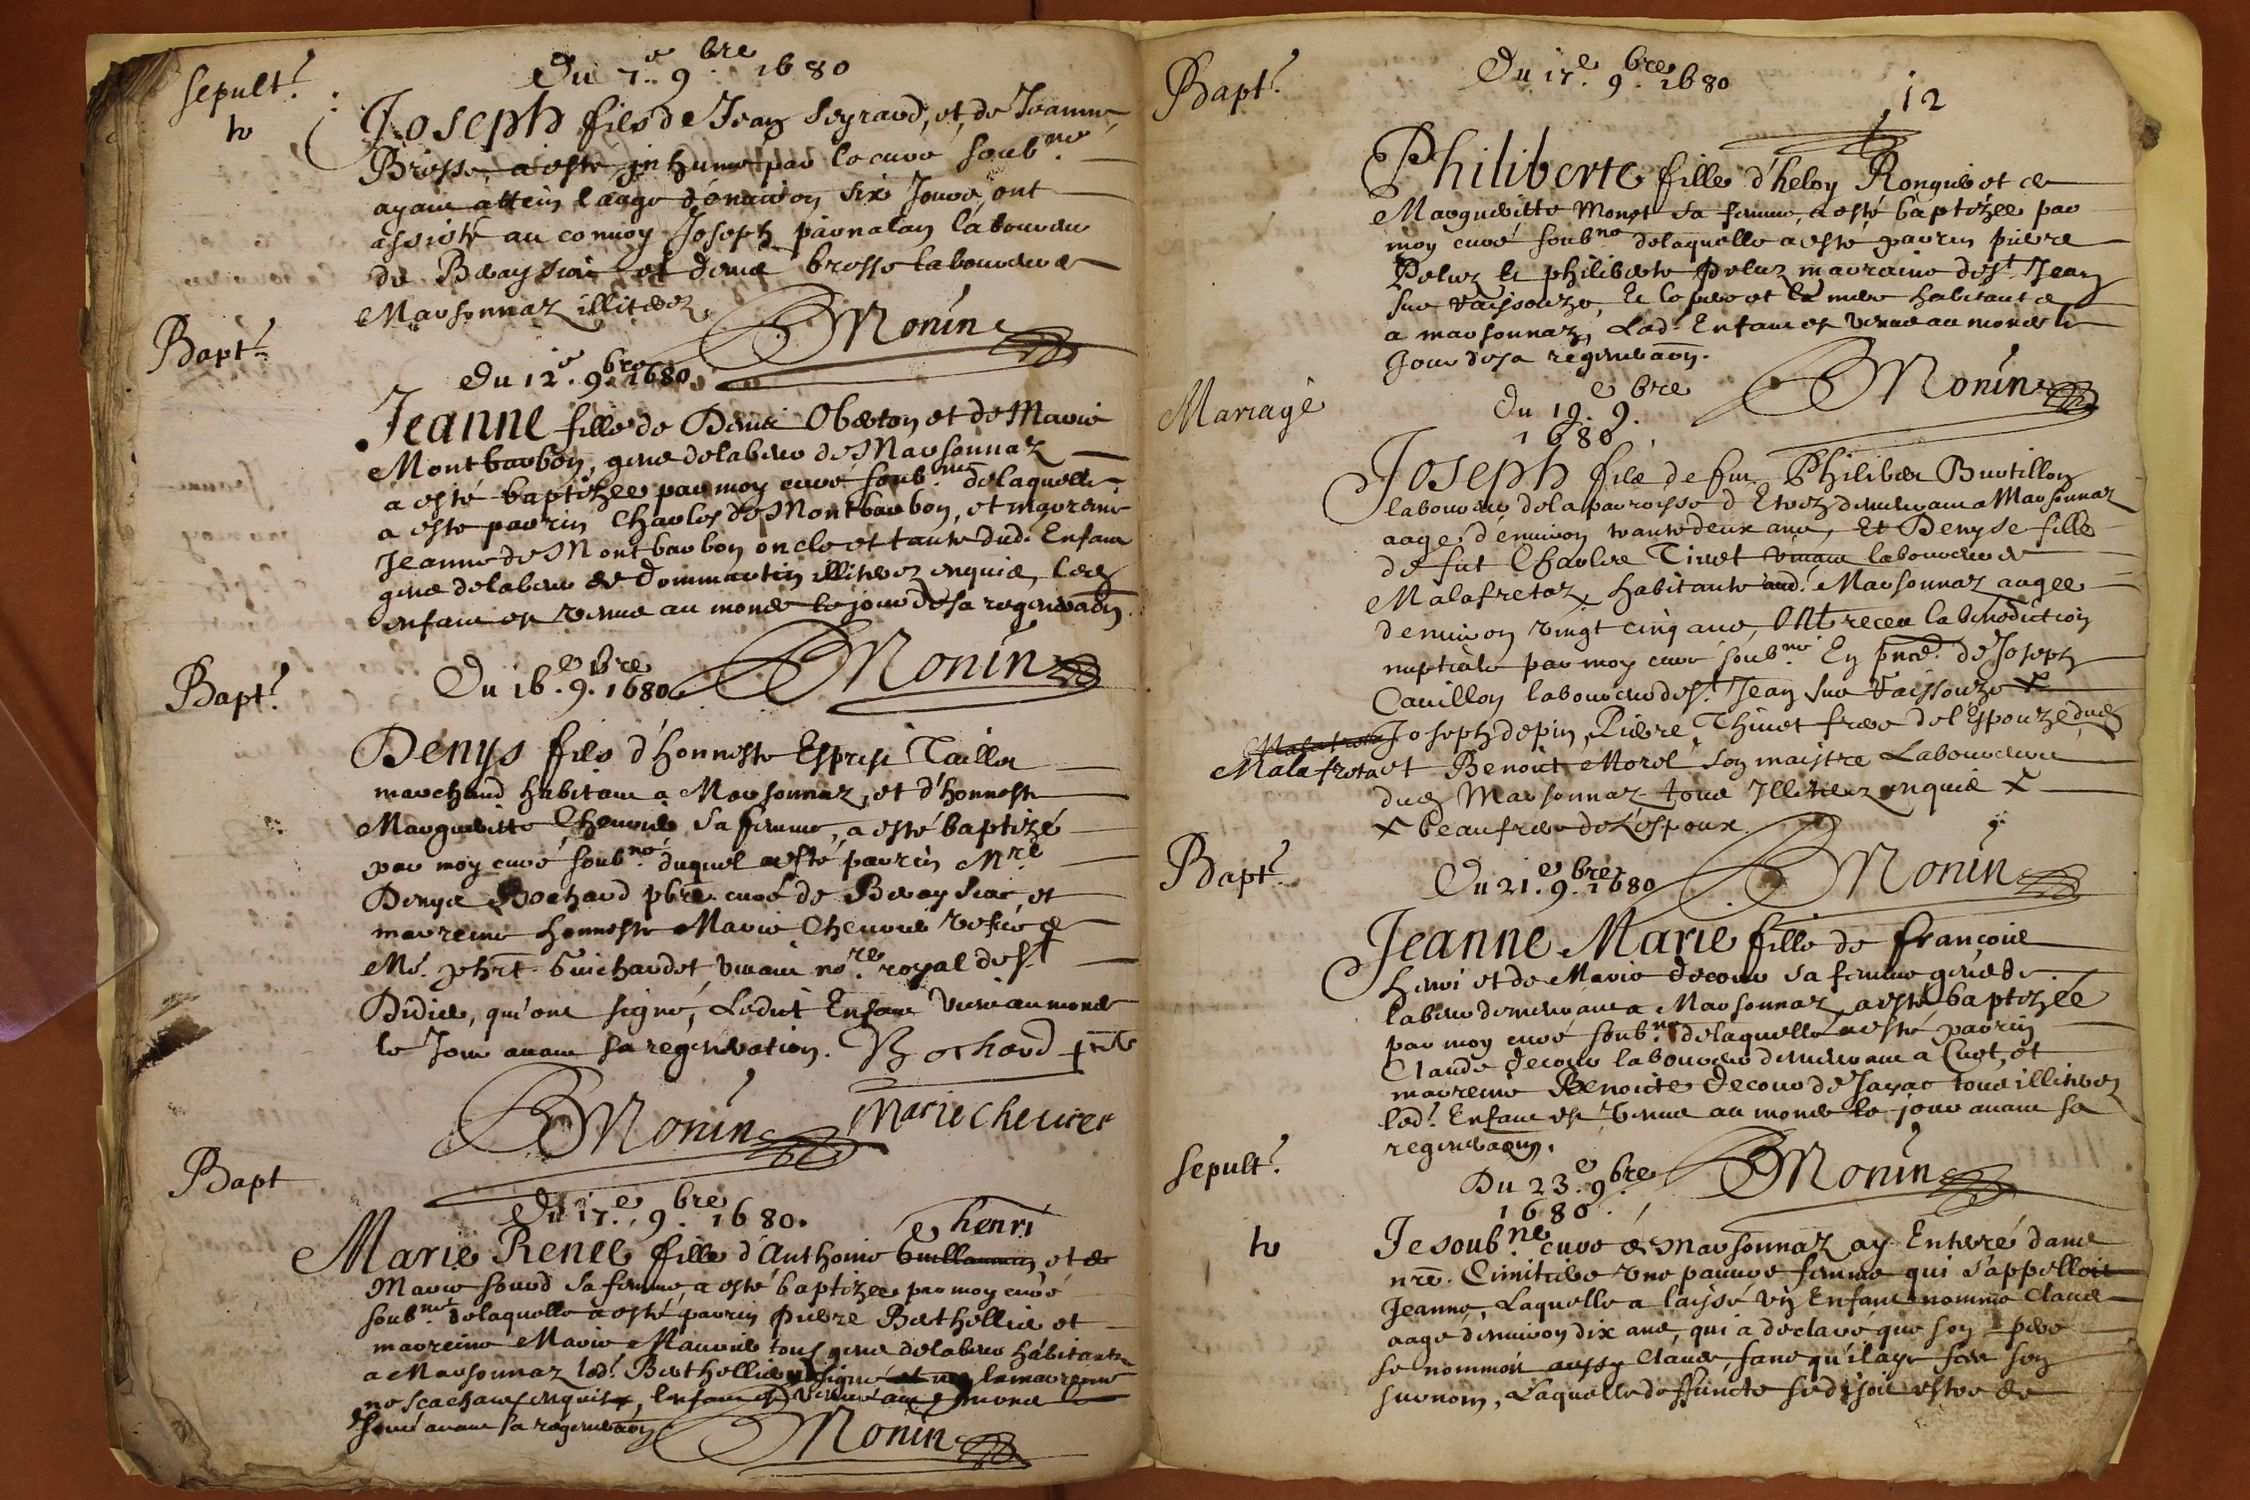 Sepult.e
Du 7.e 9.bre 1680
Joseph fils de Jean Seyraud, et, de Jeanne
Brosse, a esté inhumé par le curé soub.né
ayant attein l'aage d'environ six Jours, ont
assisté au convoy Joseph parnalan laboureur
de Beaysiat et Denis brosse laboureur a
Marsonnaz illiterez
Monin
Bapt.e
Du 12.e 9.bre 1680
Jeanne fille de Denis Oberton et de Marie
Montbarbon, gens de labeur de Marsonnaz
a esté baptizée par moy curé soub.né de laquelle
a esté parrin Charles de Montbarbon, et marreine
Jeanne de Montbarbon oncle et tante dud. Enfant
gens de labeur de Dommartin illiterez enquis, led.
enfant est venue au monde le jour de sa regeneraõn.
Monin
Bapt.e
Du 16.e 9.bre 1680
Denys fils d'honneste Esprit Tailler
marchand habitant a Marsonnaz, et d'honneste
Margueritte Chevrier sa femme, a esté baptizé
par moy curé soub.né duquel a esté parrin M.re
Denys Bochard pbre curé de Beaysiat, et
marreine honneste Marie Chevrier vefve de
Me. phrt. Guichardet vivant no.re royal de St
Didier, qui ont signé, Ledict Enfant venu au monde
le Jour avant sa regeneration. Bochard
Monin Marie Chevrier
Bapt
Du 17.e 9.bre 1680.
henri
Marie Renee fille d'Anthoine Guillaumin et de
Marie sourd sa femme, a esté baptizee par moy curé
soub.né de laquelle a esté parrin Pierre Berthellier et
marreine Marie Mauvrier tous gens de labeur habitants
a Marsonnaz led. Berthellier a signé et non la marreine
ne scachant enquise, l'enfant est venue au monde le
Jour avant sa regeneraõn
Monin
Bapt.e
Du 17.e 9.bre 1680
12
Philiberte fille d'heloy Ronguier et de
Margueritte Monet sa femme, a esté baptizée par
moy curé soub.né de laquelle a esté parrin pierre
Peluz et philiberte Peluz marraine de St. Jean
sur vaissouze, Et le pere et la mere habitants
a marsonnaz, Lad. Enfant est venue au monde le
Jour de sa regeneraõn.
Monin
Mariage
Du 19.e 9.bre
1680
Joseph fils de fut Philiber Burtillon
laboureur de la parroisse d'Etrez demeurant a Marsonnaz
aagé d'environ trante deux ans, Et Denyse fille
de fut Charles Tivet vivant laboureur de
Malafretaz, habitante aud. Marsonnaz aagee
d'environ vingt cinq ans, Ont receu la benediction
nuptiale par moy curé soub.né En pnce. de Joseph
Cavillon laboureur de St. Jean sur Vaissouze x
Joseph depin, Pierre Thivet frere de l'Espouze dud.
Malafreta et Benoit Morel son maistre Laboureur
dud. Marsonnaz tous Illiterez enquis x
x beaufrere de L'espoux
Monin
Bapt.e
Du 21.e 9.bre 1680
Jeanne Marie fille de françois
henri et de Marie decour sa femme gens de
labeur demeurant a Marsonnaz a esté baptizée
par moy curé soub.né de laquelle a esté parrin
Claude decour laboureur demeurant a Cuet, et
marreine Benoite decour de Jayac tous illiterez
lad. Enfant est venue au monde le jour avant sa
regeneraõn.
Monin
Sepult.e
Du 23.e 9.bre
1680
Je soub.né curé de Marsonnaz ay Enterré dans
nre. Cimitiere une pauvre femme qui s'appelloit
Jeanne, Laquelle a laissé un Enfant nommé Claude
aagé d'environ dix ans, qui a declaré que son pere
se nommoit aussy Claude, sans qu'il aye sceu son
surnom, Laquelle deffuncte se disoit estre de